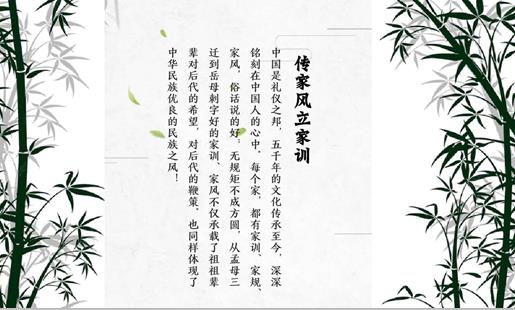 传家风立家训
中国是礼仪之邦，五千年的文化传承至今，深深
铭刻在中国人的心中，每个家，都有家训、家规、
家风，俗话说的好：无规矩不成方圆，从孟母三
迁到岳母刺字好的家训、家风不仅承载了祖祖辈
辈对后代的希望，对后代的鞭策。也同样体现了
中华民族优良的民族之风！